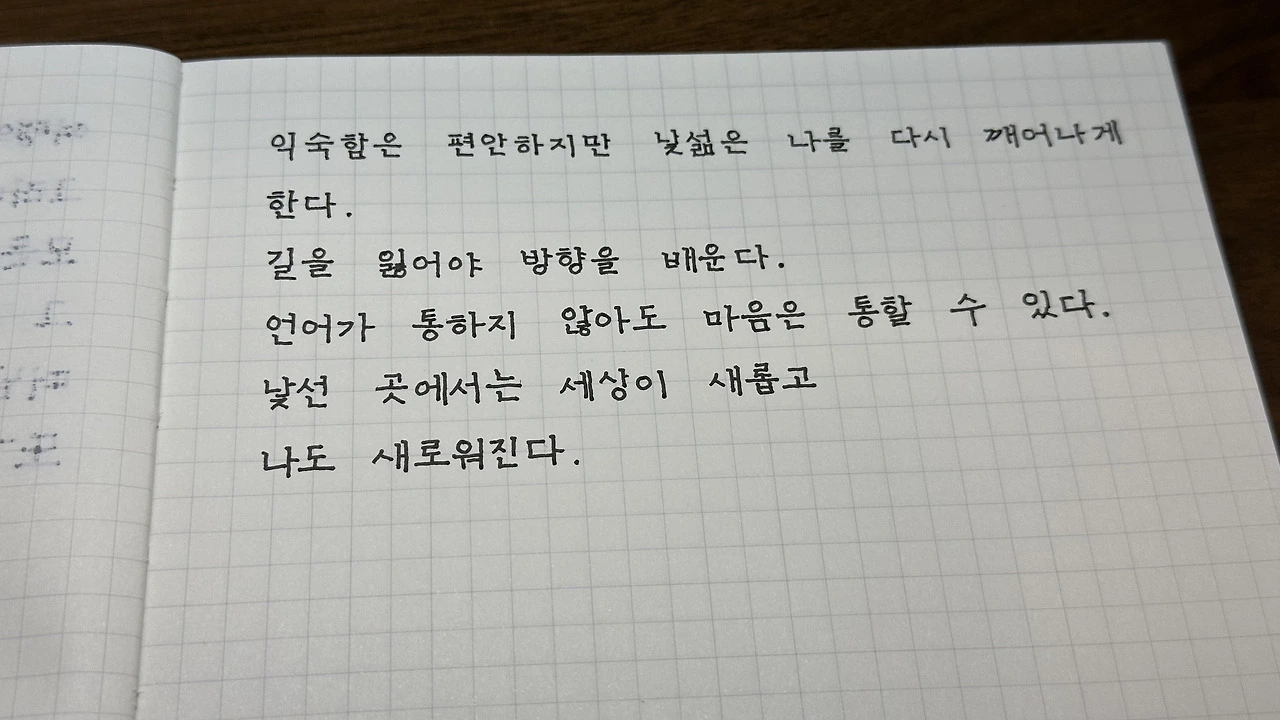 익숙함은 편안하지만 낯섦은 나를 다시 깨어나게
한다.
길을 잃어야 방향을 배운다.
언어가 통하지 않아도 마음은 통할 수 있다.
낯선 곳에서는 세상이 새롭고
나도 새로워진다.